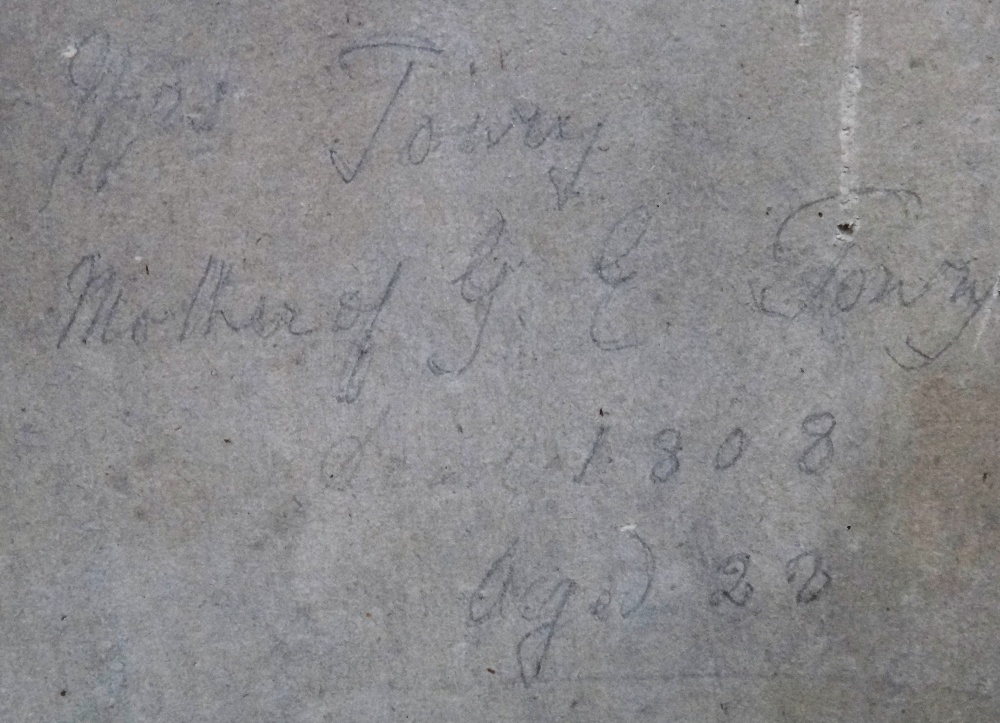 Mrs Towry
Mother of G. E Towry
d 1808
Aged 28